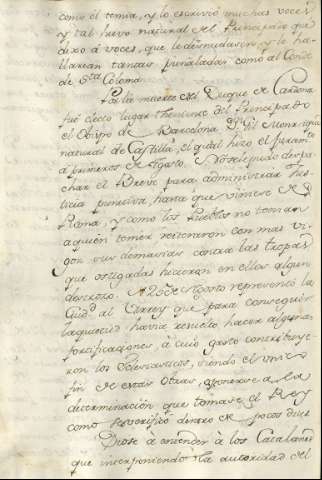 como el temia, y lo escrivió muchas voces,
y tal hevo natural del Principado que
dixo à voces, que le desnudasen y le ha-
llarian tantas puñaladas como al Conde
de Sta Coloma.
Por la muerte del Duque de Cardona
fué electo lugar theniente del Principado
el Obispo de Barcelona Dn Gil Manrique
natural de Castilla, el qual hizo el juramto
à primeros de Agosto. No se le pudo despa-
char el Breve para administrar Jus-
ticia punitiva, hasta que viniese de
Roma, y como los Pueblos no tenian
aquien temer reiteraron con mas vi-
gor sus demasias contra las tropas
que ostigadas hicieron en ellos algun
destrozo. A 25 de Agosto representó la
Ciudd al Virrey que para conseguir
la quietud havia resuelto hacer algunas
fortificaciones, à cuio gasto contribuye-
ron los Eclesiasticos, siendo el unico
fin de estas obras, oponerse à la
determinación que tomase el Rey
como se verificó dentro de pocos dias
Diose à entender à los Catalanes
que interponiendo la autoridad del